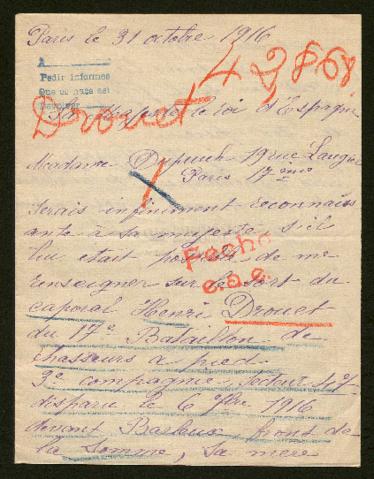 Paris le 31 octobre 1916
42868
A
Pedir informes
Que se haga est
Devolver
Drouet
Sa Majesté le roi d'Espagne
Madame Dupuch 19 rue Laugier
Paris 17ème
Serais infiniment reconnaiss
ante à sa majesté s'il
lui était possible de me
renseigner sur le sort du
Fecho
e.o.e.
caporal Henri Drouet
du 17e Bataillon de
chasseurs à pied
9e compagnie Secteur
disparu le 6 1916
devant Barleux, front de
la Somme, Sa mère